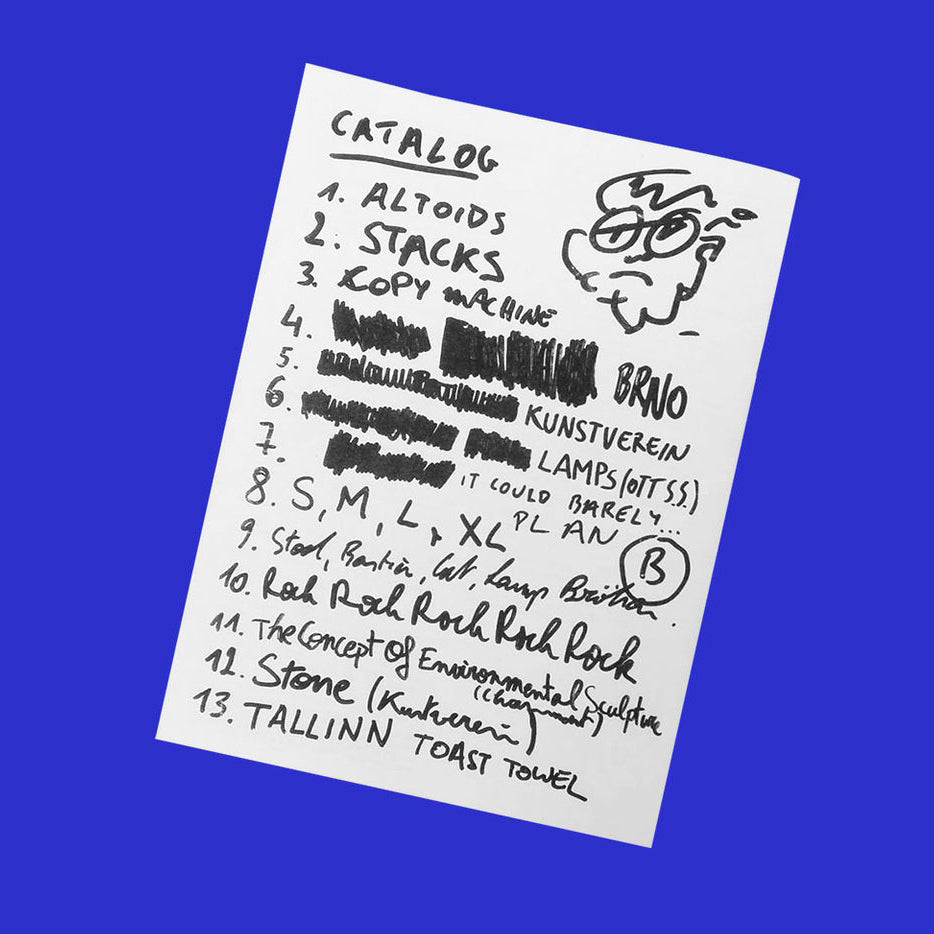 CATALOG
1. ALTOIDS
2. STACKS
3. COPY MACHINE
4. BRNO
5. KUNSTVEREIN
6. LAMPS (OTT S.S.)
7. IT COULD BARELY...
PLAN B
8. S, M, L, XL
9. Stool, Cat, Lamp
10. Rock Rock Rock Rock Rock
11. The Concept Of Environmental Sculpture
(Chaumont)
12. Stone (Kunstverein)
13. TALLINN TOAST TOWEL